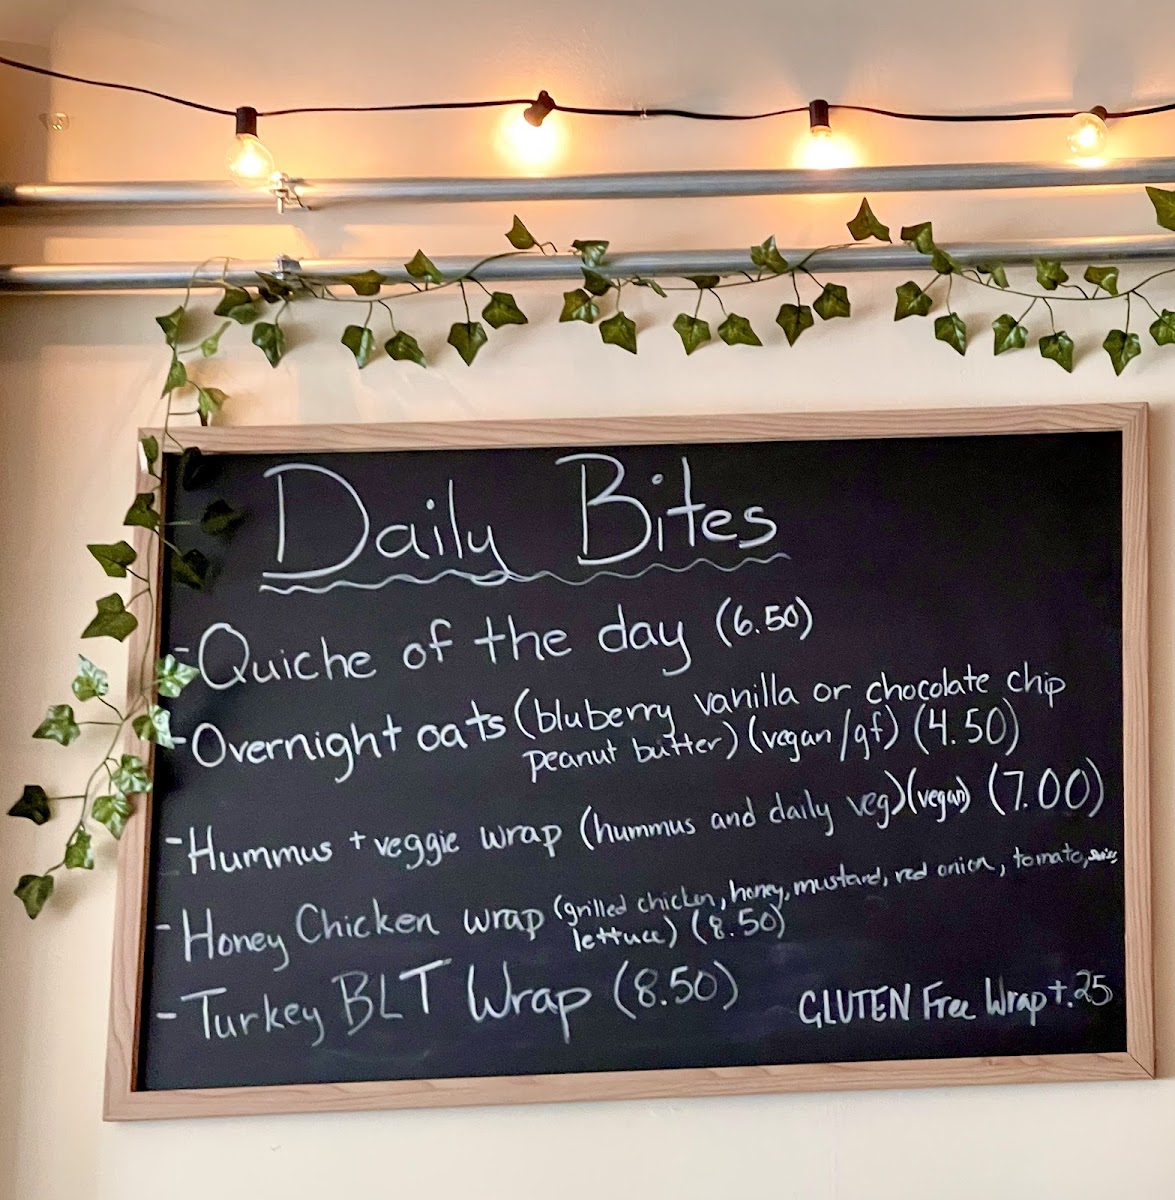 Daily Bites
- Quiche of the day (6.50)
- Overnight oats (bluberry vanilla or chocolate chip
peanut butter) (vegan/gf) (4.50)
- Hummus + veggie wrap (hummus and daily veg) (vegan) (7.00)
- Honey Chicken wrap (grilled chicken, honey, mustard, red onion, tomato, swiss
lettuce) (8.50)
- Turkey BLT Wrap (8.50)
GLUTEN Free Wrap +.25